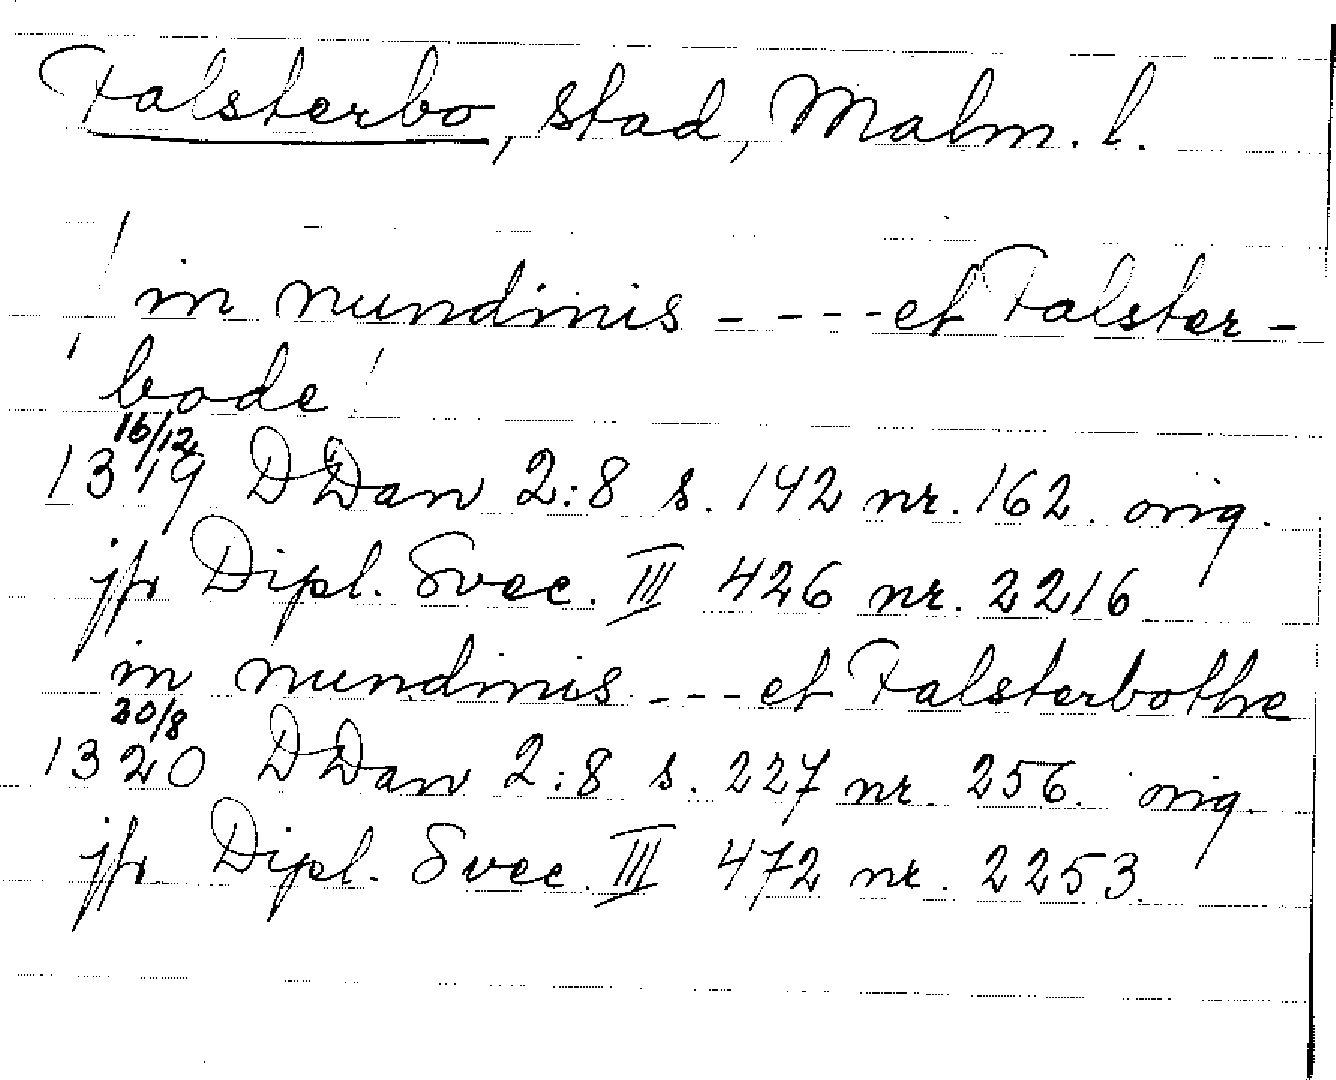 Falsterbo, stad, Malm. l.
in nundinis - - - - et Falster-
bode
16/12
1319 DDan 2:8 s. 142 nr. 162. orig.
jfr Dipl. Svec. III 426 nr. 2216
in nundinis - - - et Falsterbothe
20/8
1320 DDan 2:8 s. 227 nr. 256. orig.
jfr Dipl. Svec. III 472 nr. 2253